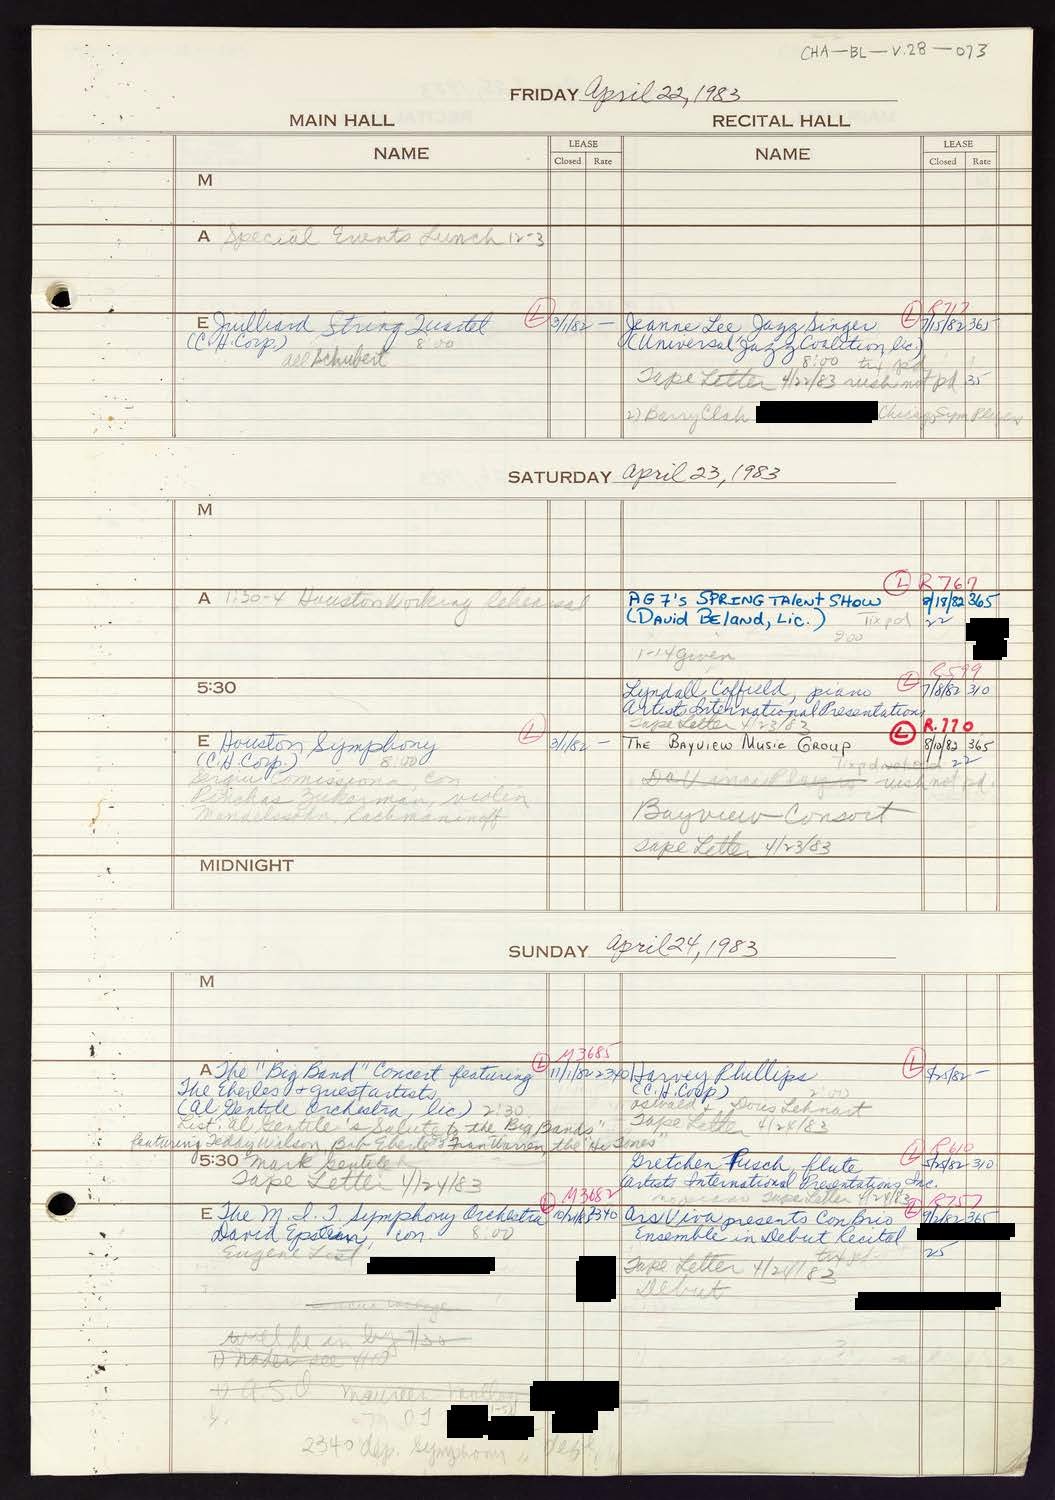 CHA-BL-V.28-073
FRIDAY April 22, 1983
MAIN HALL
RECITAL HALL
NAME
LEASE
Closed Rate
NAME
LEASE
Closed Rate
M
A Special Events Lunch 12-3
E Juilliard String Quartet L 3/1/82 —
(C.H. Corp.) 8:00
all Schubert
L R717
Jeanne Lee Jazz Singer 7/15/82 365
(Universal Jazz Coalition, lic)
8:00 tix pd
Tape Letter 4/22/83 rush not pd 35
2) Barry Clah Chicago Sym Players
SATURDAY April 23, 1983
M
A 1:30-4 Houston Working Rehearsal
L R767
AG 7's SPRING TALENT SHOW 8/18/82 365
(DAVID BELAND, Lic.) Tix pd 22
2:00
1-14 given
5:30
L R599
Lyndall Coffield, piano 7/8/82 310
Artists International Presentations
Tape Letter 4/23/83
E Houston Symphony L 3/1/82 —
(C.H. Corp.) 8:00
Sergiu Comissiona, con
Pinchas Zukerman, violin
Mendelssohn, Rachmaninoff
L R.770
THE BAYVIEW MUSIC GROUP 8/10/82 365
Tix pd 22
Da Vinci Players rush not pd.
Bayview Consort
Tape Letter 4/23/83
MIDNIGHT
SUNDAY April 24, 1983
M
L M3685
A The "Big Band" Concert featuring 11/1/82 2340
The Eberles & guest artists
(Al Gentile Orchestra, lic) 2:30
List: "Al Gentile's Salute to the Big Bands"
featuring Teddy Wilson, Bob Eberle & Fran Warren, the "Hi Tones"
L
Harvey Phillips —
(C.H. Corp) 2:00
Oswald & Doris Lehnert
Tape Letter 4/24/83
5:30 Mark Gentile
Tape Letter 4/24/83
L R610
Gretchen Pusch, flute 5/25/82 310
Artists International Presentations, Inc.
Tape Letter 4/24/83
L M3682
E The M.I.T Symphony Orchestra 2340
David Epstein, con. 8:00
Eugene List
L R757
Ars Viva presents Con Brio 9/2/82 365
Ensemble in Debut Recital
tix pd 25
Tape Letter 4/24/83
Debut
will be in by 7/30
A.S.O Maureen
2340 dep. Symphony